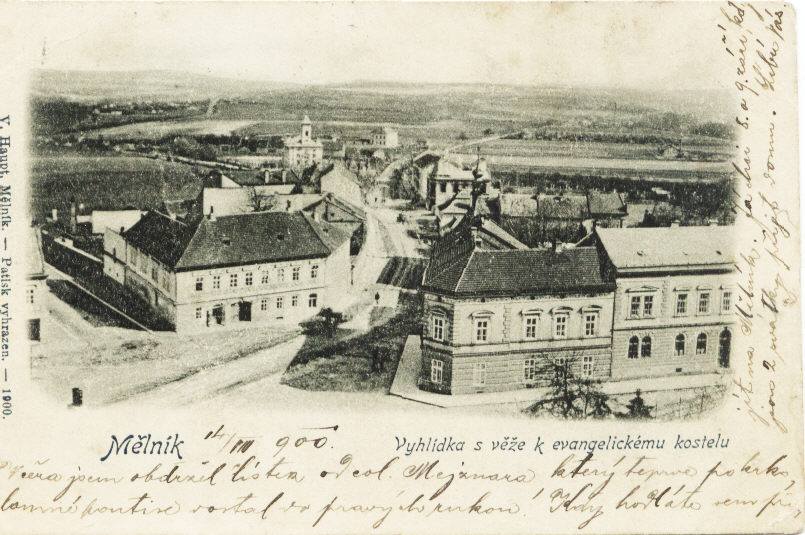 V. Haupt, Mělník. — Patisk vyhrazen. — 1900.
Mělník 14/III 900.
Vyhlídka s věže k evangelickému kostelu
Včera jsem obdržel lístek od col. Mejznara který teprve po krko,
lomné pontise dostal do pravých rukou! Kdy hodláte sem při,
jít na Mělník. Ja dni 8. a 9. září
jsou 2 svátky přijít domu. Líbá Vás.